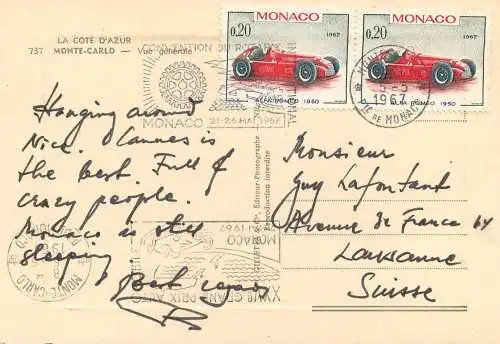 LA COTE D'AZUR
737 MONTE-CARLO — Vue générale
CONVENTION DU ROTARY
MONACO 21-26 MAI 1967
MONACO
0,20 1967
ALFA-ROMEO 1950
MONACO
0,20 1967
ALFA-ROMEO 1950
5-5
1967
Pté DE MONACO
Hanging around
Nice. Cannes is
the best. Full of
crazy people.
Monaco is still
sleeping
Best regards
Monsieur
Guy Lafontant
Avenue de France 64
Lausanne
Suisse
Editeur-Photographe
Reproduction interdite
MONTE-CARLO
XXVe GRAND PRIX AUTO
MONACO
MAI 1967